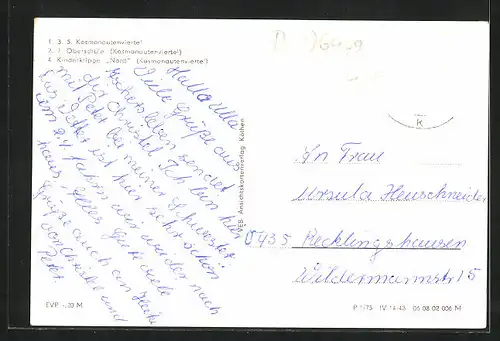 1. 3. 5. Kosmonautenviertel
2. 1. Oberschule (Kosmonautenviertel)
4. Kinderkrippe „Nord" (Kosmonautenviertel)
Hallo Ulla
Viele Grüße aus
Aschersleben sendet
dir Christel. Ich bin hier
mit Peter bei meiner Schwester.
Das Wetter ist hier sehr schön
am 24. fahren wir wieder nach
haus. Alles Gute viele
Grüße auch an
von Christel und
Peter.
VEB Ansichtskartenverlag Köthen
K
An Frau
Ursula Heuschneider
0435 Recklingshausen
Wildermannstr 15
EVP -,20 M
P 1/75 IV-14-48 05 08 02 006 M